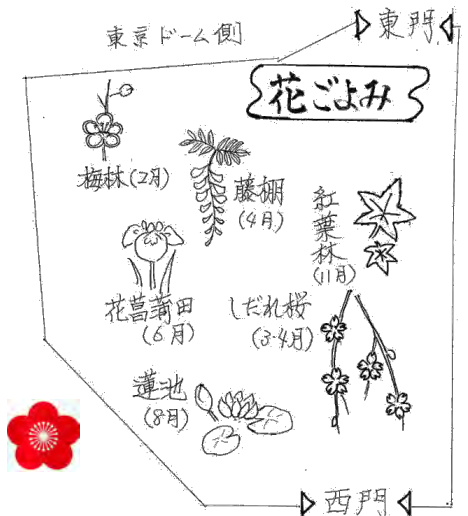 東京ドーム側
東門
花ごよみ
梅林(2月)
藤棚
(4月)
紅葉林
(11月)
花菖蒲田
(6月)
しだれ桜
(3・4月)
蓮池
(8月)
西門